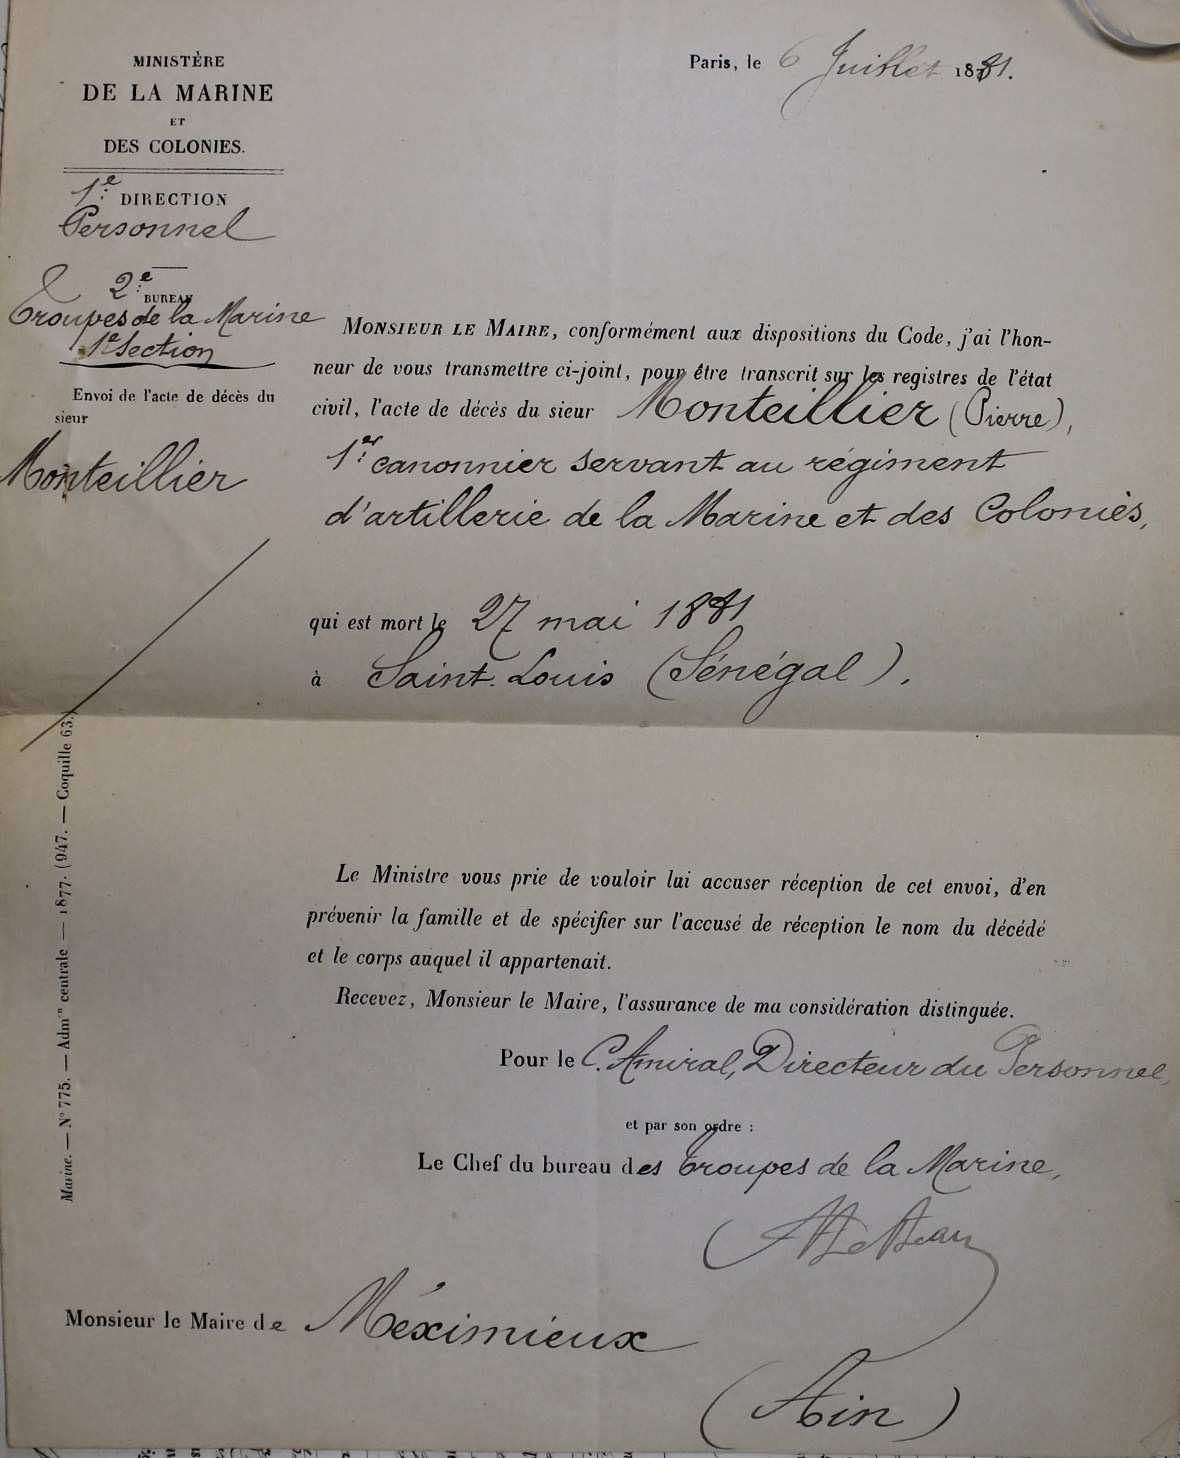 MINISTÈRE
DE LA MARINE
ET
DES COLONIES.
Paris, le 6 Juillet 1881.
1e DIRECTION
Personnel
2e BUREAU
Troupes de la Marine
1e Section
Envoi de l'acte de décès du
sieur
Monteillier
MONSIEUR LE MAIRE, conformément aux dispositions du Code, j'ai l'hon-
neur de vous transmettre ci-joint, pour être transcrit sur les registres de l'état
civil, l'acte de décès du sieur Monteillier (Pierre),
1er canonnier servant au régiment
d'artillerie de la Marine et des Colonies,
qui est mort le 27 mai 1881
à Saint-Louis (Sénégal).
Le Ministre vous prie de vouloir lui accuser réception de cet envoi, d'en
prévenir la famille et de spécifier sur l'accusé de réception le nom du décédé
et le corps auquel il appartenait.
Recevez, Monsieur le Maire, l'assurance de ma considération distinguée.
Pour le C. Amiral, Directeur du Personnel,
et par son ordre :
Le Chef du bureau des Troupes de la Marine,
Monsieur le Maire de Méximieux
(Ain)
Marine. — N° 775. — Admon centrale — 1877. (947. — Coquille 63.)